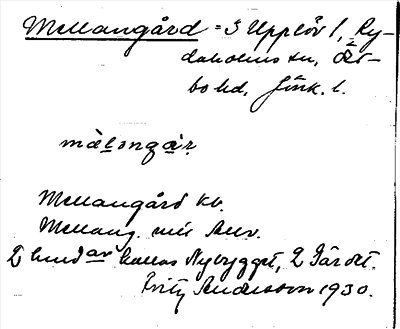 Mellangård = S Upplöv 1, Ry-
daholms sn, Öst-
bo hd, Jönk. l.
mæ̀lǝngạ̊r
Mellangård kv.
Mellang. mil Auv.
2 hmd av kallas Nybygget, 2 Gärdet.
Fritz Andersson 1930.